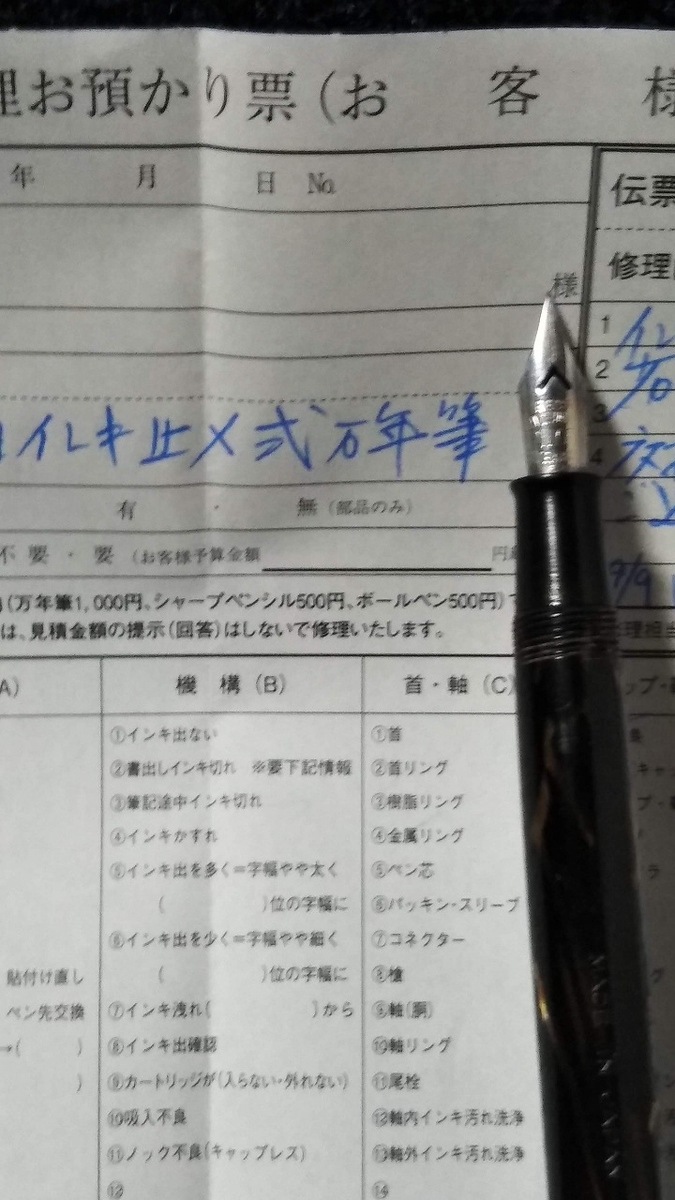 理お預かり票(お客様
年 月 日 No.
伝票
様
修理
1 イン
2
3
4
インキ止メ式万年筆
有 ・ 無(部品のみ)
不要・要(お客様予算金額 円
9/9
(万年筆1,000円、シャープペンシル500円、ボールペン500円)
は、見積金額の提示(回答)はしないで修理いたします。
修理担当
A)
貼付け直し
ペン先交換
→( )
)
機構(B)
①インキ出ない
②書出しインキ切れ ※要下記情報
③筆記途中インキ切れ
④インキかすれ
⑤インキ出を多く=字幅やや太く
( )位の字幅に
⑥インキ出を少く=字幅やや細く
( )位の字幅に
⑦インキ洩れ( )から
⑧インキ出確認
⑨カートリッジが(入らない・外れない)
⑩吸入不良
⑪ノック不良(キャップレス)
⑫
首・軸(C)
①首
②首リング
③樹脂リング
④金属リング
⑤ペン芯
⑥パッキン・スリーブ
⑦コネクター
⑧槍
⑨軸(胴)
⑩軸リング
⑪尾栓
⑫軸内インキ汚れ洗浄
⑬軸外インキ汚れ洗浄
⑭